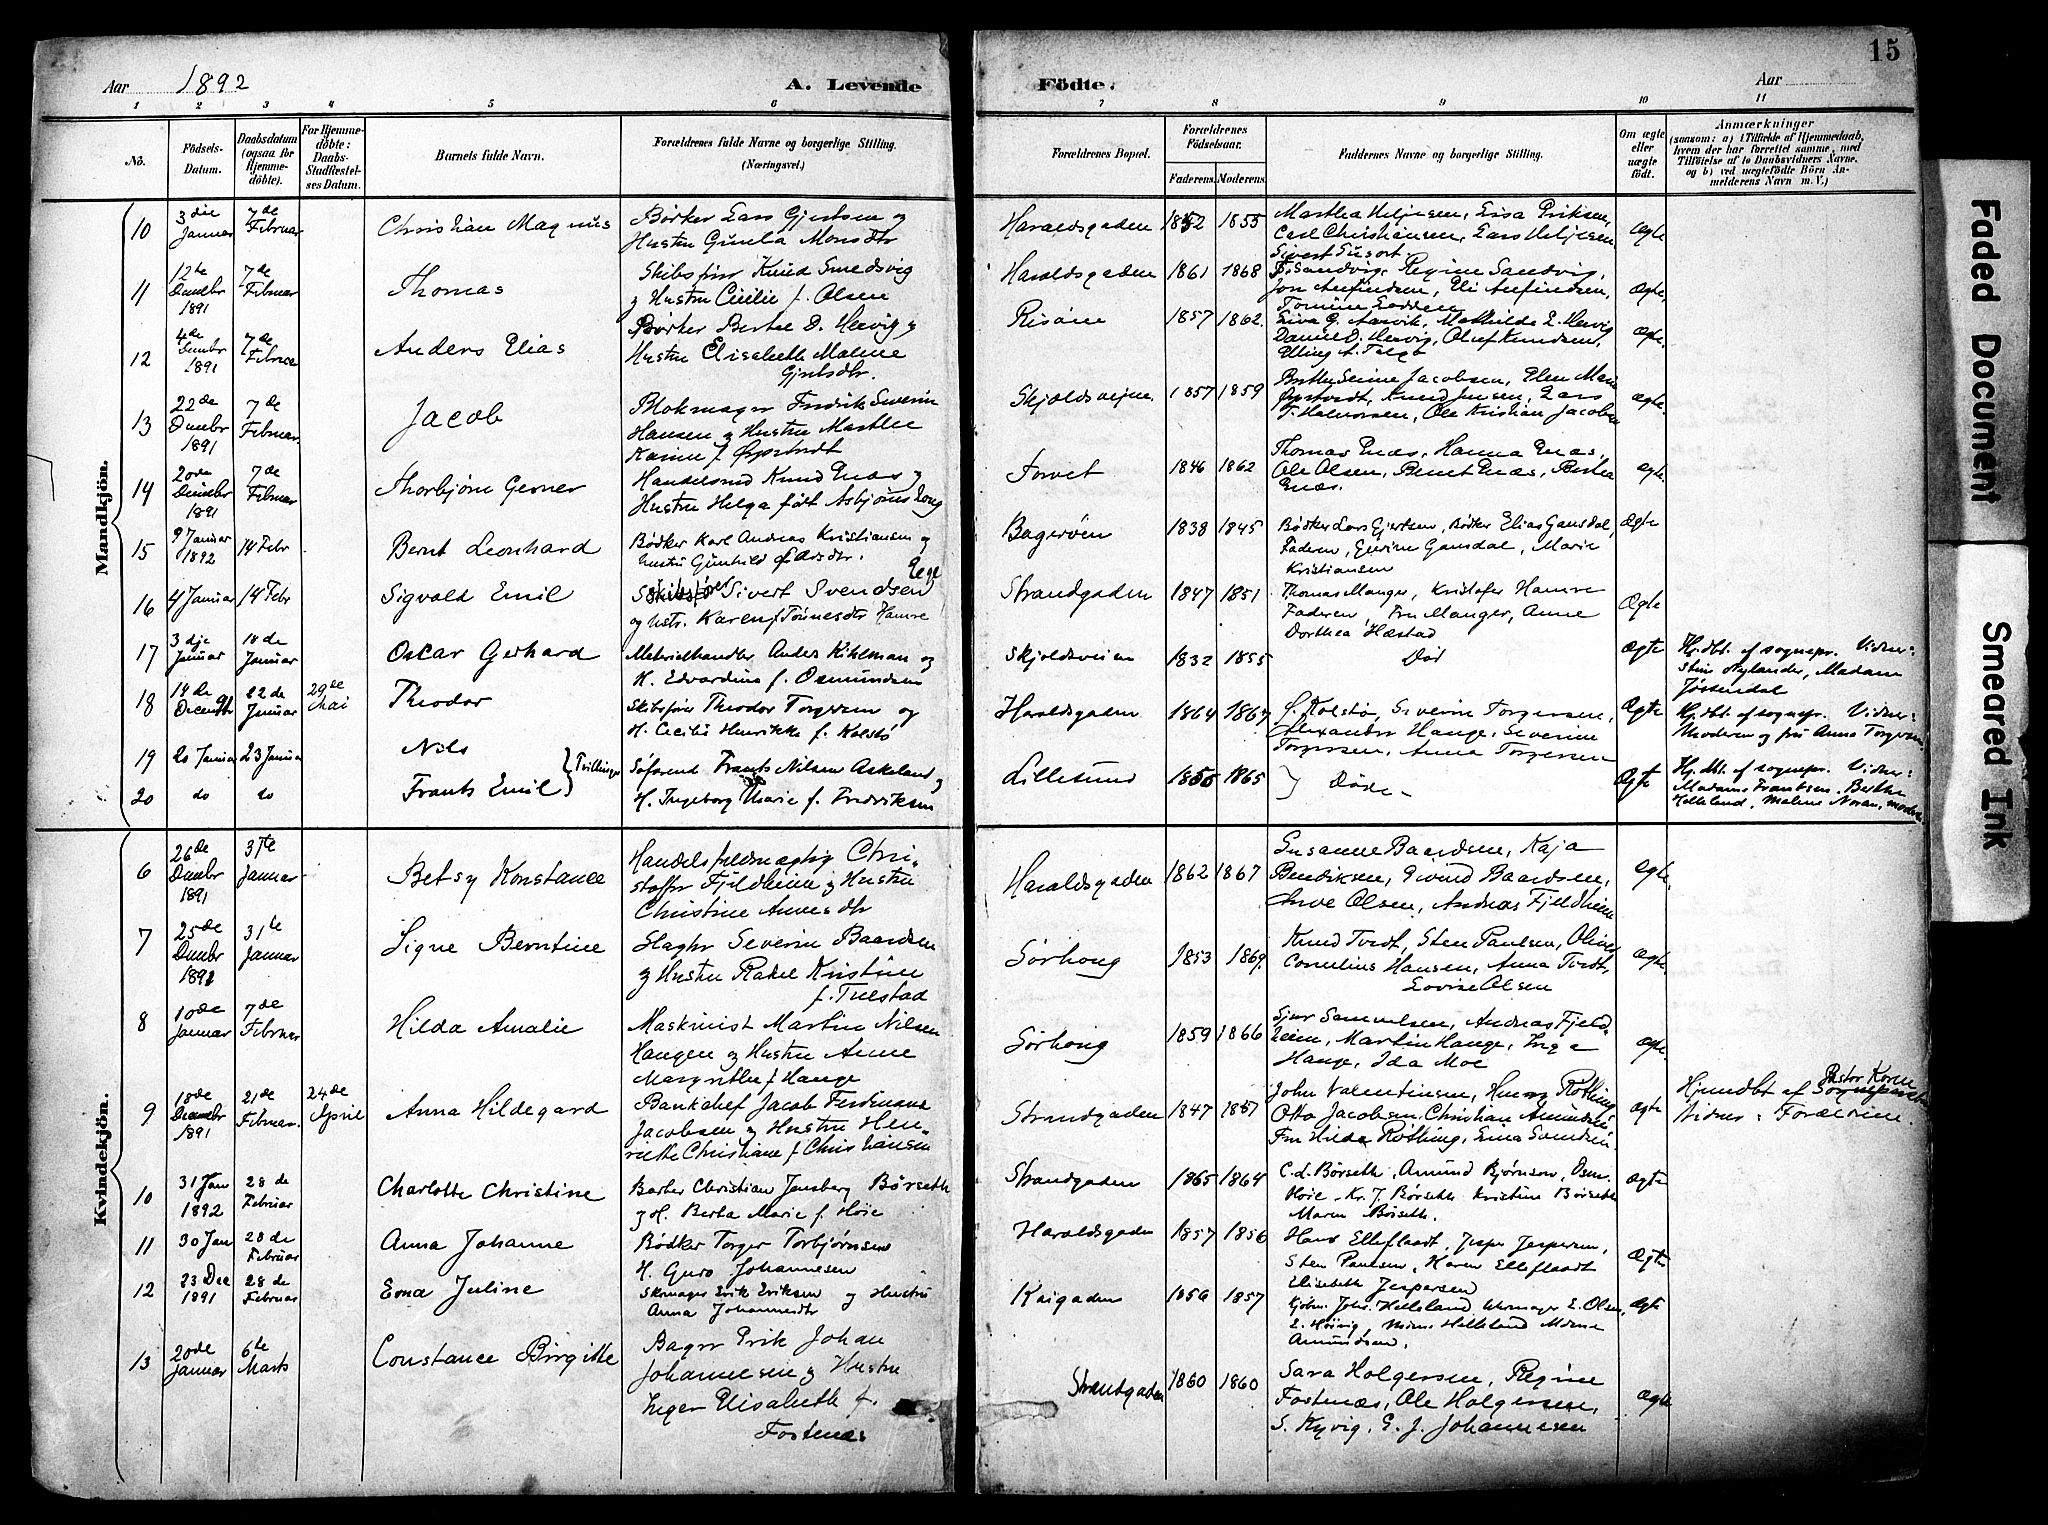 15
Aar 1892 A. Levende Födte. Aar
1 2 3 4 5 6 7 8 9 10 11
No.
Födsels-Datum.
Daabsdatum (ogsaa for Hjemme-döbte).
For Hjemme-döbte: Daabs-Stadfæstel-ses Datum.
Barnets fulde Navn.
Forældrenes fulde Navne og borgerlige Stilling. (Næringsvei.)
Forældrenes Bopæl.
Forældrenes Födselsaar.
Faderens. Moderens.
Faddernes Navne og borgerlige Stilling.
Om ægte eller uægte födt.
Anmærkninger
(saasom: a) i Tilfælde af Hjemmedaab, hvem der har forrettet samme, med Tilföielse af to Daabsvidners Navne, og b) ved uægtefödte Börn An-melderens Navn m. V.)
Mandkjön.
10 3die Januar 7de Februar Christian Magnus Bødker Lars Gjertsen og Hustru Gunla Monsdtr Haraldsgaden 1852 1855 Martha Meljesen, Lisa Eriksen, Carl Christiansen, Lars Ægte
11 12te Decembr 1891 7de Februar Thomas Skibsfører Knud Smedsvig og Hustru Cicilie f. Olsen Haraldsgaden 1861 1868 Sandvig, Regine Sandvig, Jon Anfindsen, Eli Anfindsen, Ægte
12 4de Decembr 1891 7de Februar Anders Elias Bødker Bertel D. Hervig og Hustru Elisabeth Malene Gjertsdtr. Risøen 1857 1862. Mathilde L. Hervig Daniel D. Hervig, Oluf Knudsen, Elling A. Ægte.
13 22de Decembr 1891 7de Februar. Jacob Blokmager Fredrik Severin Hansen og Hustru Marthe Karine f. Skjoldsveien 1857 1859 Berthe Serine Jacobsen, Elen Marie Knud Jensen, Lars T. Halvorsen, Ole Kristian Jacobsen Ægte.
14 20de Decembr 1891 7de Februar Thorbjørn Gerner Handelsmd Knud Enæs og Hustru Helga født Asbjørns Torvet 1846 1862 Thomas Enæs, Hanna Enæs, Ole Olsen, Bernt Enæs, Bertha Enæs. Ægte.
15 9 Januar 1892 14 Febr Bernt Leonhard Bødker Karl Andreas Kristiansen og Hustru Gunhild Bagerøen 1838 1845 Bødker Lars Gjertsen, Bødker Elias Gansdal, Faderen, Gurine Gansdal, Marie Kristiansen Ægte
16 4 Januar 14 Febr Sigvald Emil Skibsfør Sivert Svendsen Ege og Hstr. Karen f Tønnesdtr Hamre Strandgaden 1847 1851 Thomas Manger, Kristofer Hamre Faderen, Fru Manger, Anne Dorthea Hæstad Ægte
17 3dje Januar 18de Januar Oscar Gerhard Materialhandler Anders Kihlman og H. Edvardine f. Osmundsen Skjoldsveien 1832 1855 Død Ægte Hj.dbt. af sognepr. Vidner: Stine Nylander, Madam Jøssendal
18 14de Decembr 22de Januar 29de Mai Theodor Skibsfører Theodor Torgersen og H. Cecilie Henrikke f. Kolstø Haraldsgaden 1864 1867 Kolstø, Severin Torgersen, Alexander Hauge, Severine Torgersen, Anna Torgersen Ægte Hj.dbt. af sognepr. Vidner: Moderen og fru Anna Torgersen.
19 20 Januar 23 Januar Nils } Tvillinger Søfarend Frants Nilsen Askeland og Lillesund 1855 1865 } Døde - Ægte Hj.dbt. af sognepr. Vidner: Madame Frantsen, Berthe
20 do do Frants Emil H. Ingeborg Marie f. Fredriksen Helleland, Malene
Kvindekjön.
6 26de Decembr 1891 31te Januar Betsy Konstance Handelsfuldmægtig Chri-stoffer Fjeldheim og Hustru Christine Annesdtr Haraldsgaden 1862 1867 Susanne Baardsen, Kaja Bendiksen, Eivind Baardsen, Olsen, Andreas Fjeldheim Ægte.
7 25de Decembr 1891 31te Januar Signe Berntine Slagter Severin Baardsen og Hustru Rakel Kristine f. Tuestad Sørhoug 1853 1869. Knud Tvedt, Sten Paulsen, Oliver Cornelius Hansen, Anna Tvedt, Lovise Olsen Ægte.
8 10de Januar 7de Februar Hilda Amalie Maskinist Martin Nilsen Haugen og Hustru Anne Margrethe f Hauge Sørhoug 1859 1866 Sjur Samuelsen, Andreas Fjeld-heim, Martin Hauge, Inga Hauge, Ida Moe Ægte.
9 18de Decembr 1891 21de Februar. 24de April Anna Hildegard Bankchef Jacob Ferdinand Jacobsen og Hustru Hen-riette Christiane f Christiansen Strandgaden 1847 1851 John Valentinsen, Henry Røthing Otto Jacobsen, Christian Amundsen Fru Hilda Røthing, Ægte Hjemdbt af Sognepræsten Pastor Koren Vidner: Forældrene.
10 31 Jan 1892 28de Februar Charlotte Christine Barber Christian Jensberg Børseth og H. Berta Marie f. Høie Strandgaden 1865 1864 C.L. Børseth, Amund Bjørnson, Høie, Kr. J. Børseth Kristine Børseth Maren Børseth. Ægte
11 30 Jan 28de Februar Anna Johanne Bødker Torger Torbjørnsen H. Guro Johannesen Haraldsgaden 1857 1856 Hans Elleflaadt, Jesper Jespersen, Sten Paulsen, Karen Elleflaadt Elisabeth Jespersen Ægte
12 23 Dec 1891 28de Februar Erna Juline Skomager Erik Eriksen og Hustru Anna Johannesdtr Kaigaden 1856 1857 Kjøbm. Johs. Helleland E. Olsen, Helleland Amundsen. Ægte
13 20de Januar 6te Marts Constance Birgitte Bager Erik Johan Johannesen og Hustru Inger Elisabeth f. Fostenæs Strandgaden 1860 1860 Sara Holgersen, Regine Fostenæs, Ole Holgersen, S. Kyvig, E. J. Johannesen Ægte
Faded Document
Smeared Ink